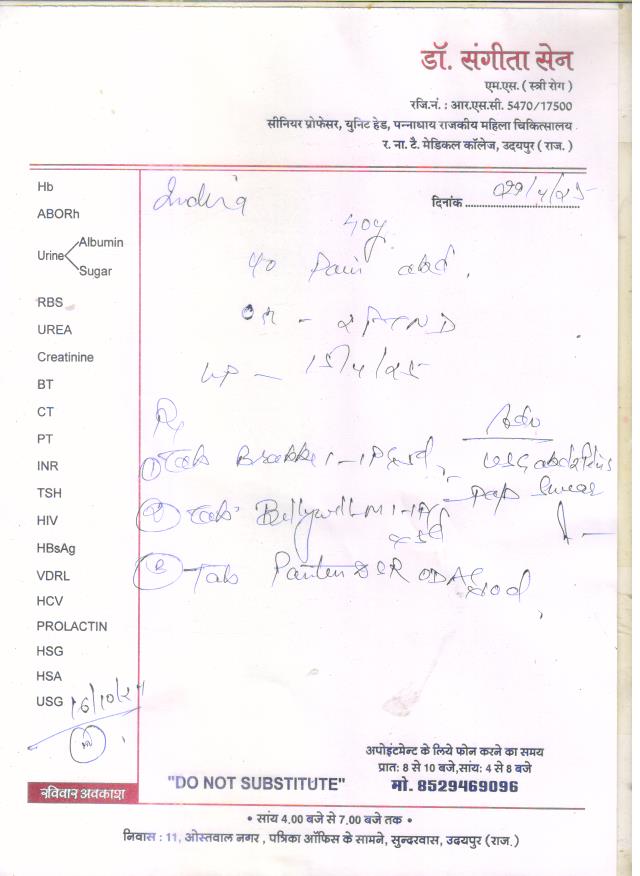 डॉ. संगीता सेन
एम.एस. ( स्त्री रोग )
रजि.नं. : आर.एस.सी. 5470/17500
सीनियर प्रोफेसर, युनिट हेड, पन्नाधाय राजकीय महिला चिकित्सालय
र. ना. टै. मेडिकल कॉलेज, उदयपुर ( राज. )
दिनांक
Hb
ABORh
Urine Albumin
Sugar
RBS
UREA
Creatinine
BT
CT
PT
INR
TSH
HIV
HBsAg
VDRL
HCV
PROLACTIN
HSG
HSA
USG 16/10/24
रविवार अवकाश
Indira
40y
Pain abd.
15/4/25
Rx
Adv
① Tab
Pap Smear
② Tab
③ Tab DSR OD
"DO NOT SUBSTITUTE"
अपोइंटमेन्ट के लिये फोन करने का समय
प्रातः 8 से 10 बजे,सांयः 4 से 8 बजे
मो. 8529469096
• सांय 4.00 बजे से 7.00 बजे तक •
निवास : 11, ओस्तवाल नगर , पत्रिका ऑफिस के सामने, सुन्दरवास, उदयपुर (राज.)